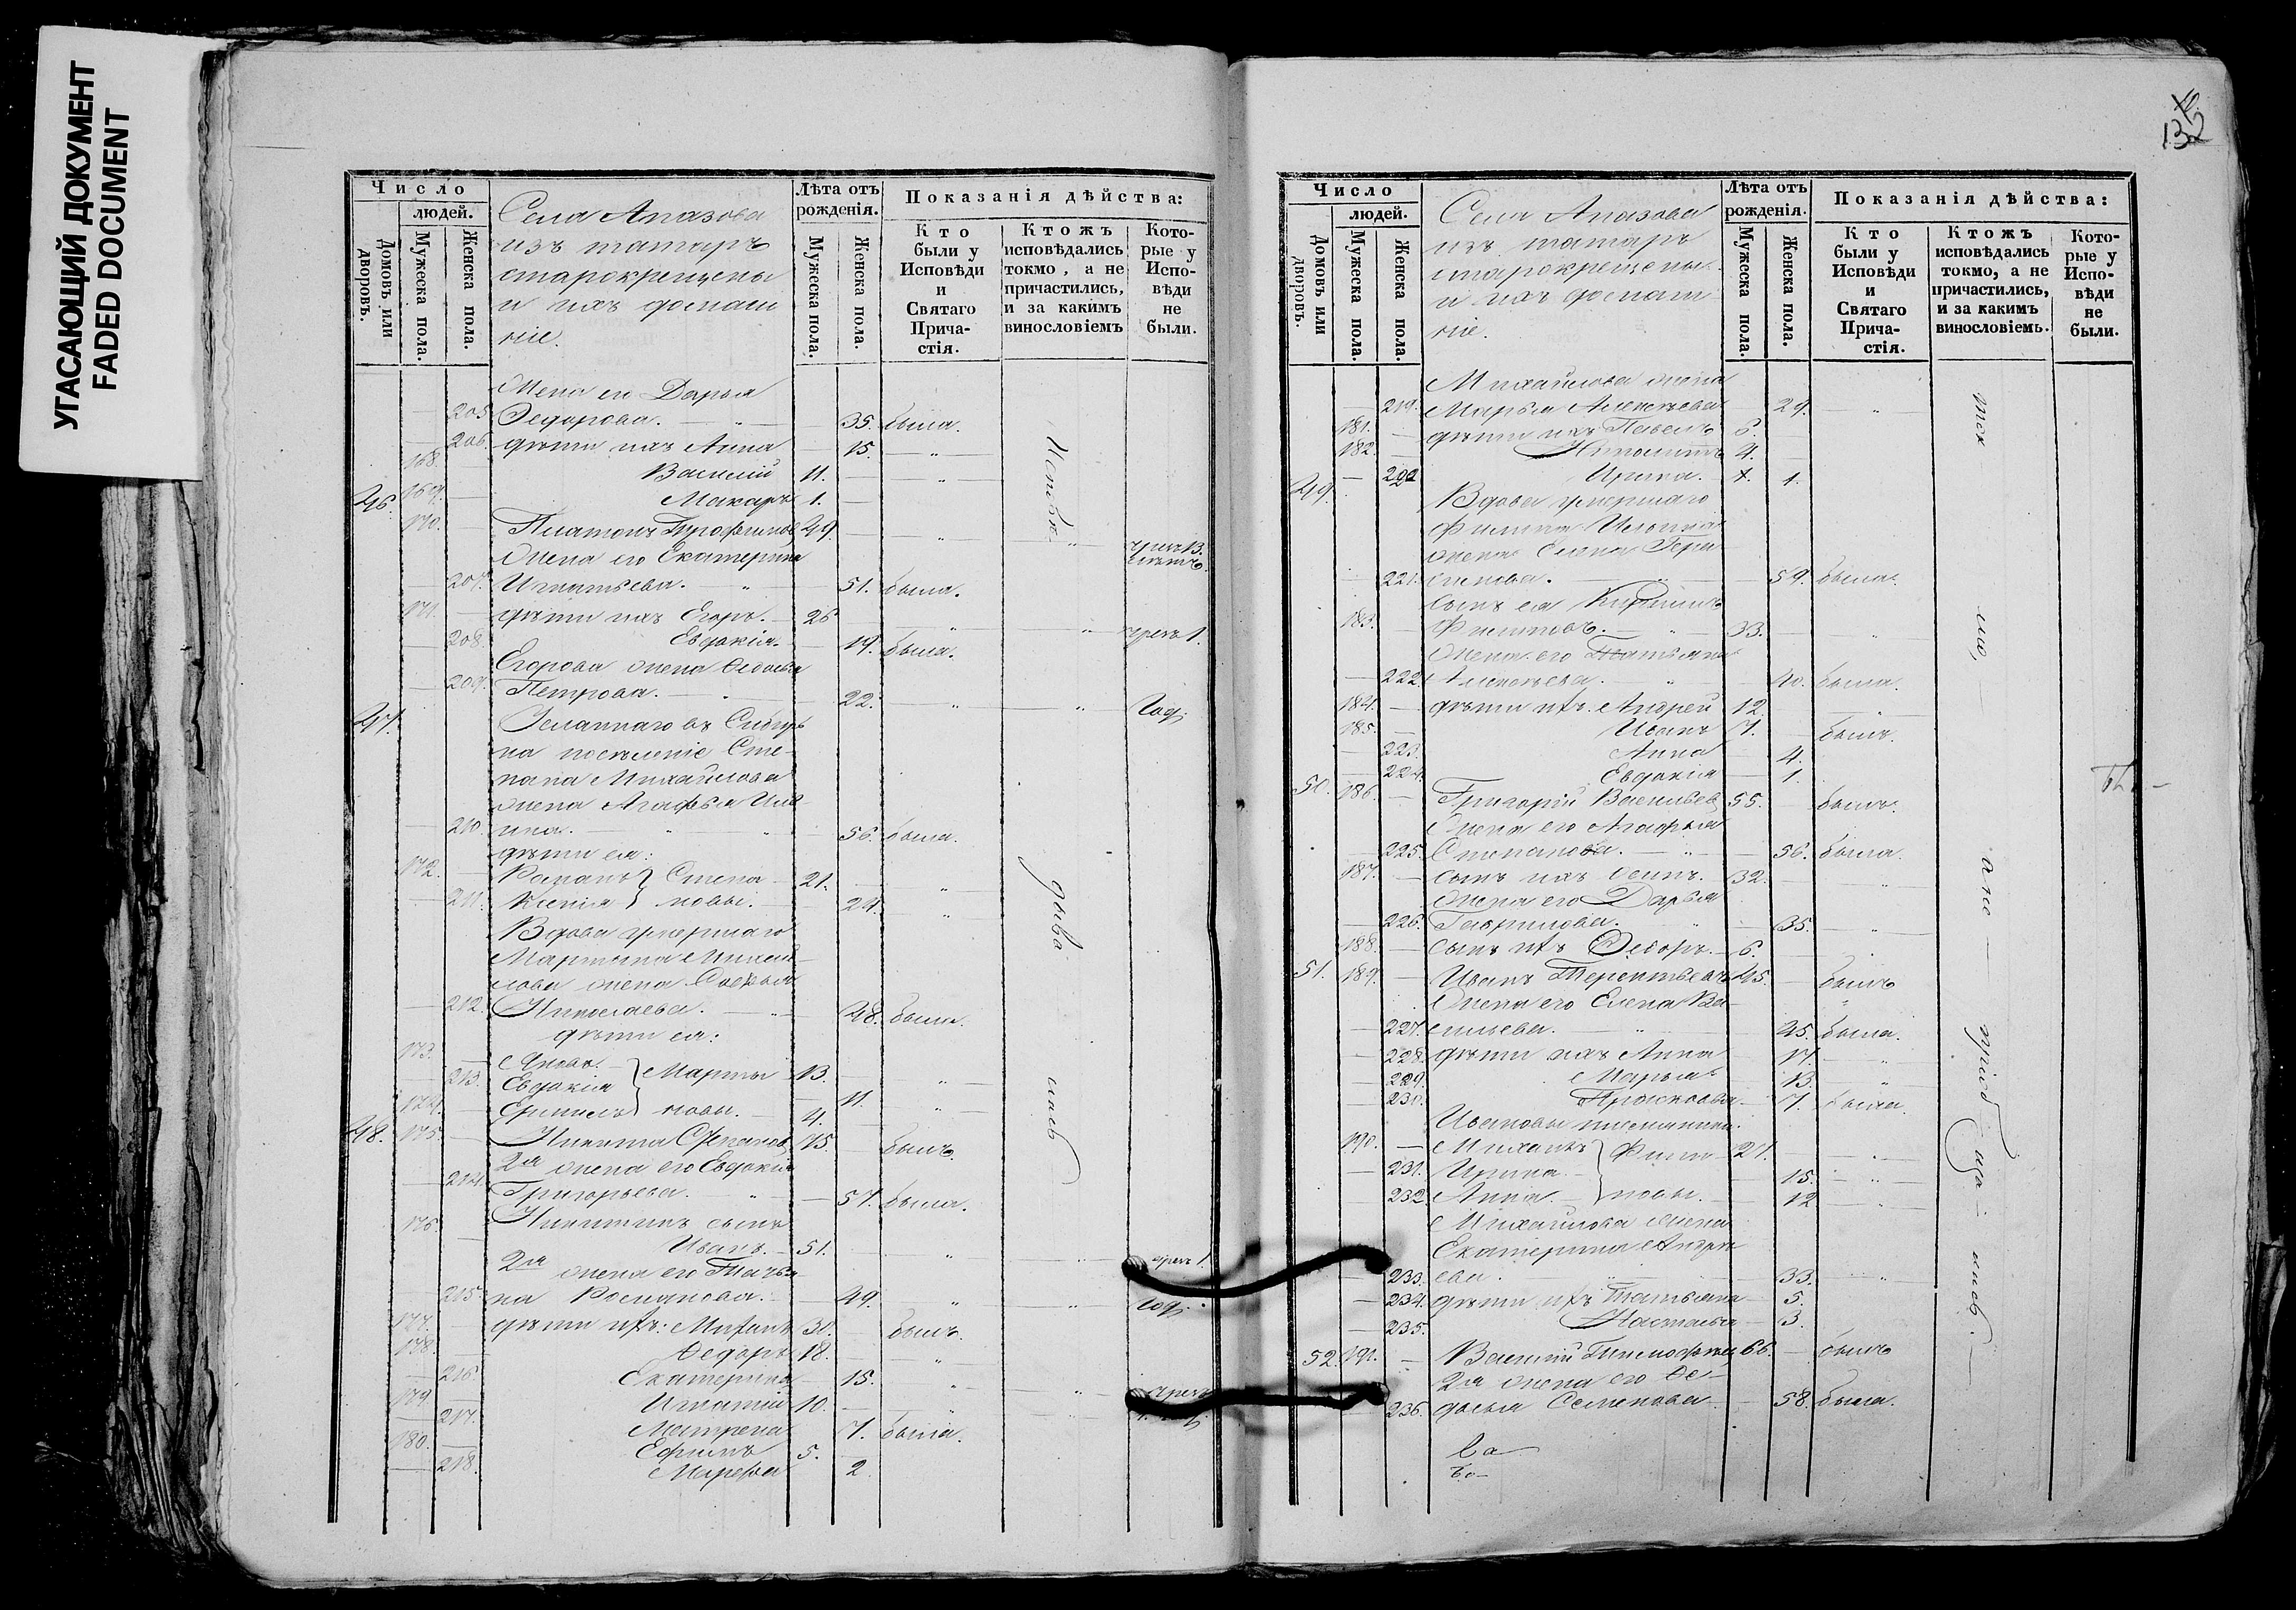 УГАСАЮЩИЙ ДОКУМЕНТ
FADED DOCUMENT
Число
людей.
Домовъ или дворовъ.
Мужеска пола.
Женска пола.
Села Апазова
изъ татаръ
старокрещены
и ихъ домаш
ніе.
Лѣта отъ рожденія.
Мужеска пола.
Женска пола.
Показанія дѣйства:
Кто были у Исповѣди и Святаго Прича-стія.
Ктожъ исповѣдались токмо, а не причастились, и за какимъ винословіемъ
Кото-рые у Испо-вѣди не были.
Жена его Дарья
205. Ѳедорова. 35. была.
206. дѣти ихъ Анна 15. „
168. Василій 11. „
169. Макаръ 1.
46. 170. Платонъ Трофимовъ 49. „ „
Жена его Екатерина
207. Игнатьева. 51. была.
171. дѣти ихъ Егоръ. 26 „ „ чрезъ 1.
208. Евдокія. 19. была.
Егорова жена Ѳедосья
209. Петрова. 22. „ „
47. Сосланнаго въ Сибирь
на поселеніе Сте-
пана Михайлова
жена Агафья Иль-
210. ина. 56. была.
дѣти ея:
172. Романъ } Степа- 21. „
211. Ксенія } новы. 29. „
Вдова умершаго
Мартына Михай-
лова жена Софья
212. Николаева. 48. была.
дѣти ея:
173. Яковъ. } Марты- 13. „
213. Евдокія 11. „
174. Ермилъ } новы. 4.
48. 175. Никита Степановъ 75. былъ.
2я жена его Евдокія
214. Григорьева. 57. была.
176. Никитинъ сынъ
Иванъ. 51. „ „ чрезъ 1.
2я жена его Татья-
215. на Романова. 49. „ „
177. дѣти ихъ: Михаилъ 30. былъ.
178. Ѳедоръ 18. „
216. Екатерина 15. „
179. Игнатій 10. „
217. Матрена 7. была.
180. Ефимъ 5.
218. Марфа 2.
132
Число
людей.
Домовъ или дворовъ.
Мужеска пола.
Женска пола.
Села Апазова
изъ татаръ
старокрещены
и ихъ домаш
ніе.
Лѣта отъ рожденія.
Мужеска пола.
Женска пола.
Показанія дѣйства:
Кто были у Исповѣди и Святаго Прича-стія.
Ктожъ исповѣдались токмо, а не причастились, и за какимъ винословіемъ.
Кото-рые у Испо-вѣди не были.
Михайлова жена
219. Марья Алексѣева 29. „
181. дѣти ихъ Павелъ 6.
182. Ипполитъ 4.
220 Ирина. 1.
49. Вдова умершаго
Филипа
жена Елена Гера-
221. симова. 59. была.
сынъ ея Кирилъ
183. Филиповъ. 33. „
Жена его Татьяна
222. Алексѣева. 40. была.
184. дѣти ихъ. Андрей 12. „
185. Иванъ 7. былъ.
223. Анна 4.
224. Евдокія 1.
50. 186. Григорій Васильев 55. былъ.
Жена его Агафья
225. Степанова. 56. была.
187. сынъ ихъ Осипъ. 32. „
Жена его Дарья
226. Гаврилова. 35. „
188. сынъ ихъ Ѳедоръ. 6.
51. 189. Иванъ Терентьевъ 45. былъ
Жена его Елена Ва-
227. сильева. 45. была.
228. дѣти ихъ Анна 17. „
229. Марья 13. „
230. Прасковья 7. была.
Ивановы племянни.
190. Михаилъ } Фили- 21. „
231. Ирина. 15. „
232. Анна } повы. 12 „
Михайлова жена
Екатерина Андре
233. ева. 33. „
234. дѣти ихъ Татьяна 5.
235. Настасья 3.
52. 191. Василій Тимофѣев 66. былъ
2я жена его Ѳе-
236. досья Семенова 58. была.